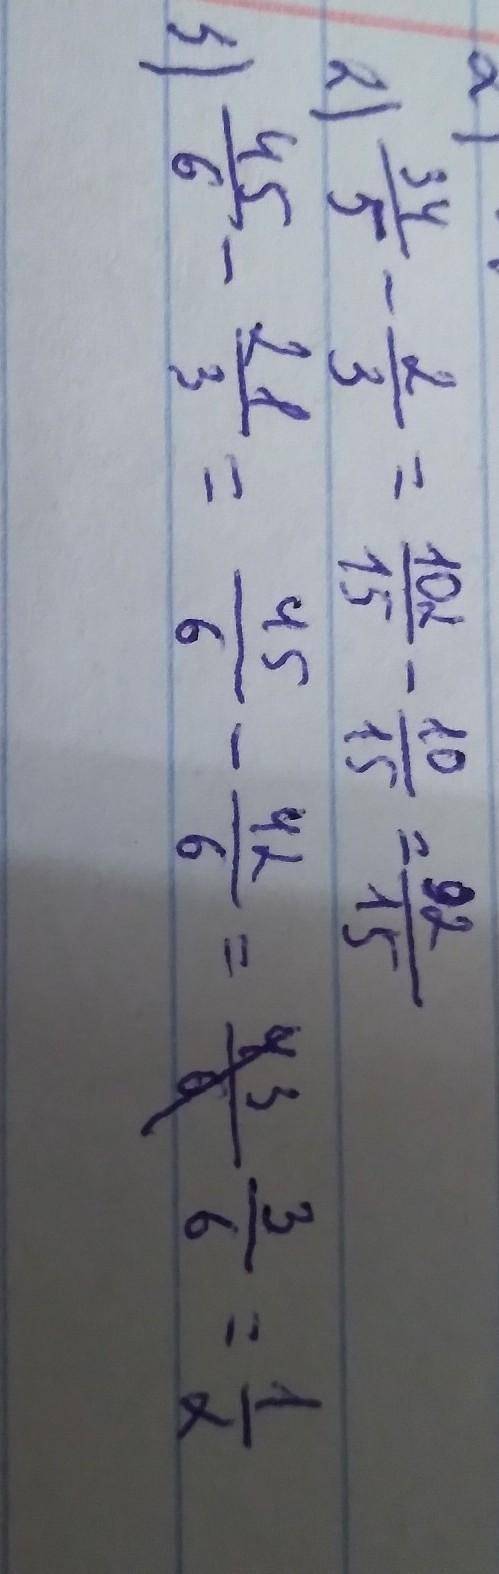 2)
2) 34/5 - 2/3 = 102/15 - 10/15 = 92/15
3) 45/6 - 21/3 = 45/6 - 42/6 = 3/6 = 1/2